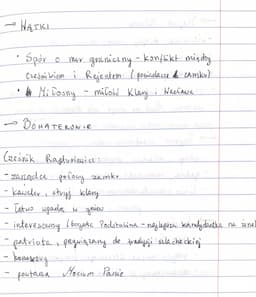 → WĄTKI
• Spór o mur graniczny - konflikt między
Cześnikiem i Rejentem (posiadacze zamku)
• Miłosny - miłość Klary i Wacława
→ BOHATEROWIE
Cześnik Raptusiewicz:
- zarządca połowy zamku
- kawaler, stryj Klary
- łatwo wpada w gniew
- interesowny (bogata Podstolina - najlepsza kandydatka na żonę)
- patriota, przywiązany do tradycji szlacheckiej
- honorowy
- powtarza Mocium Panie